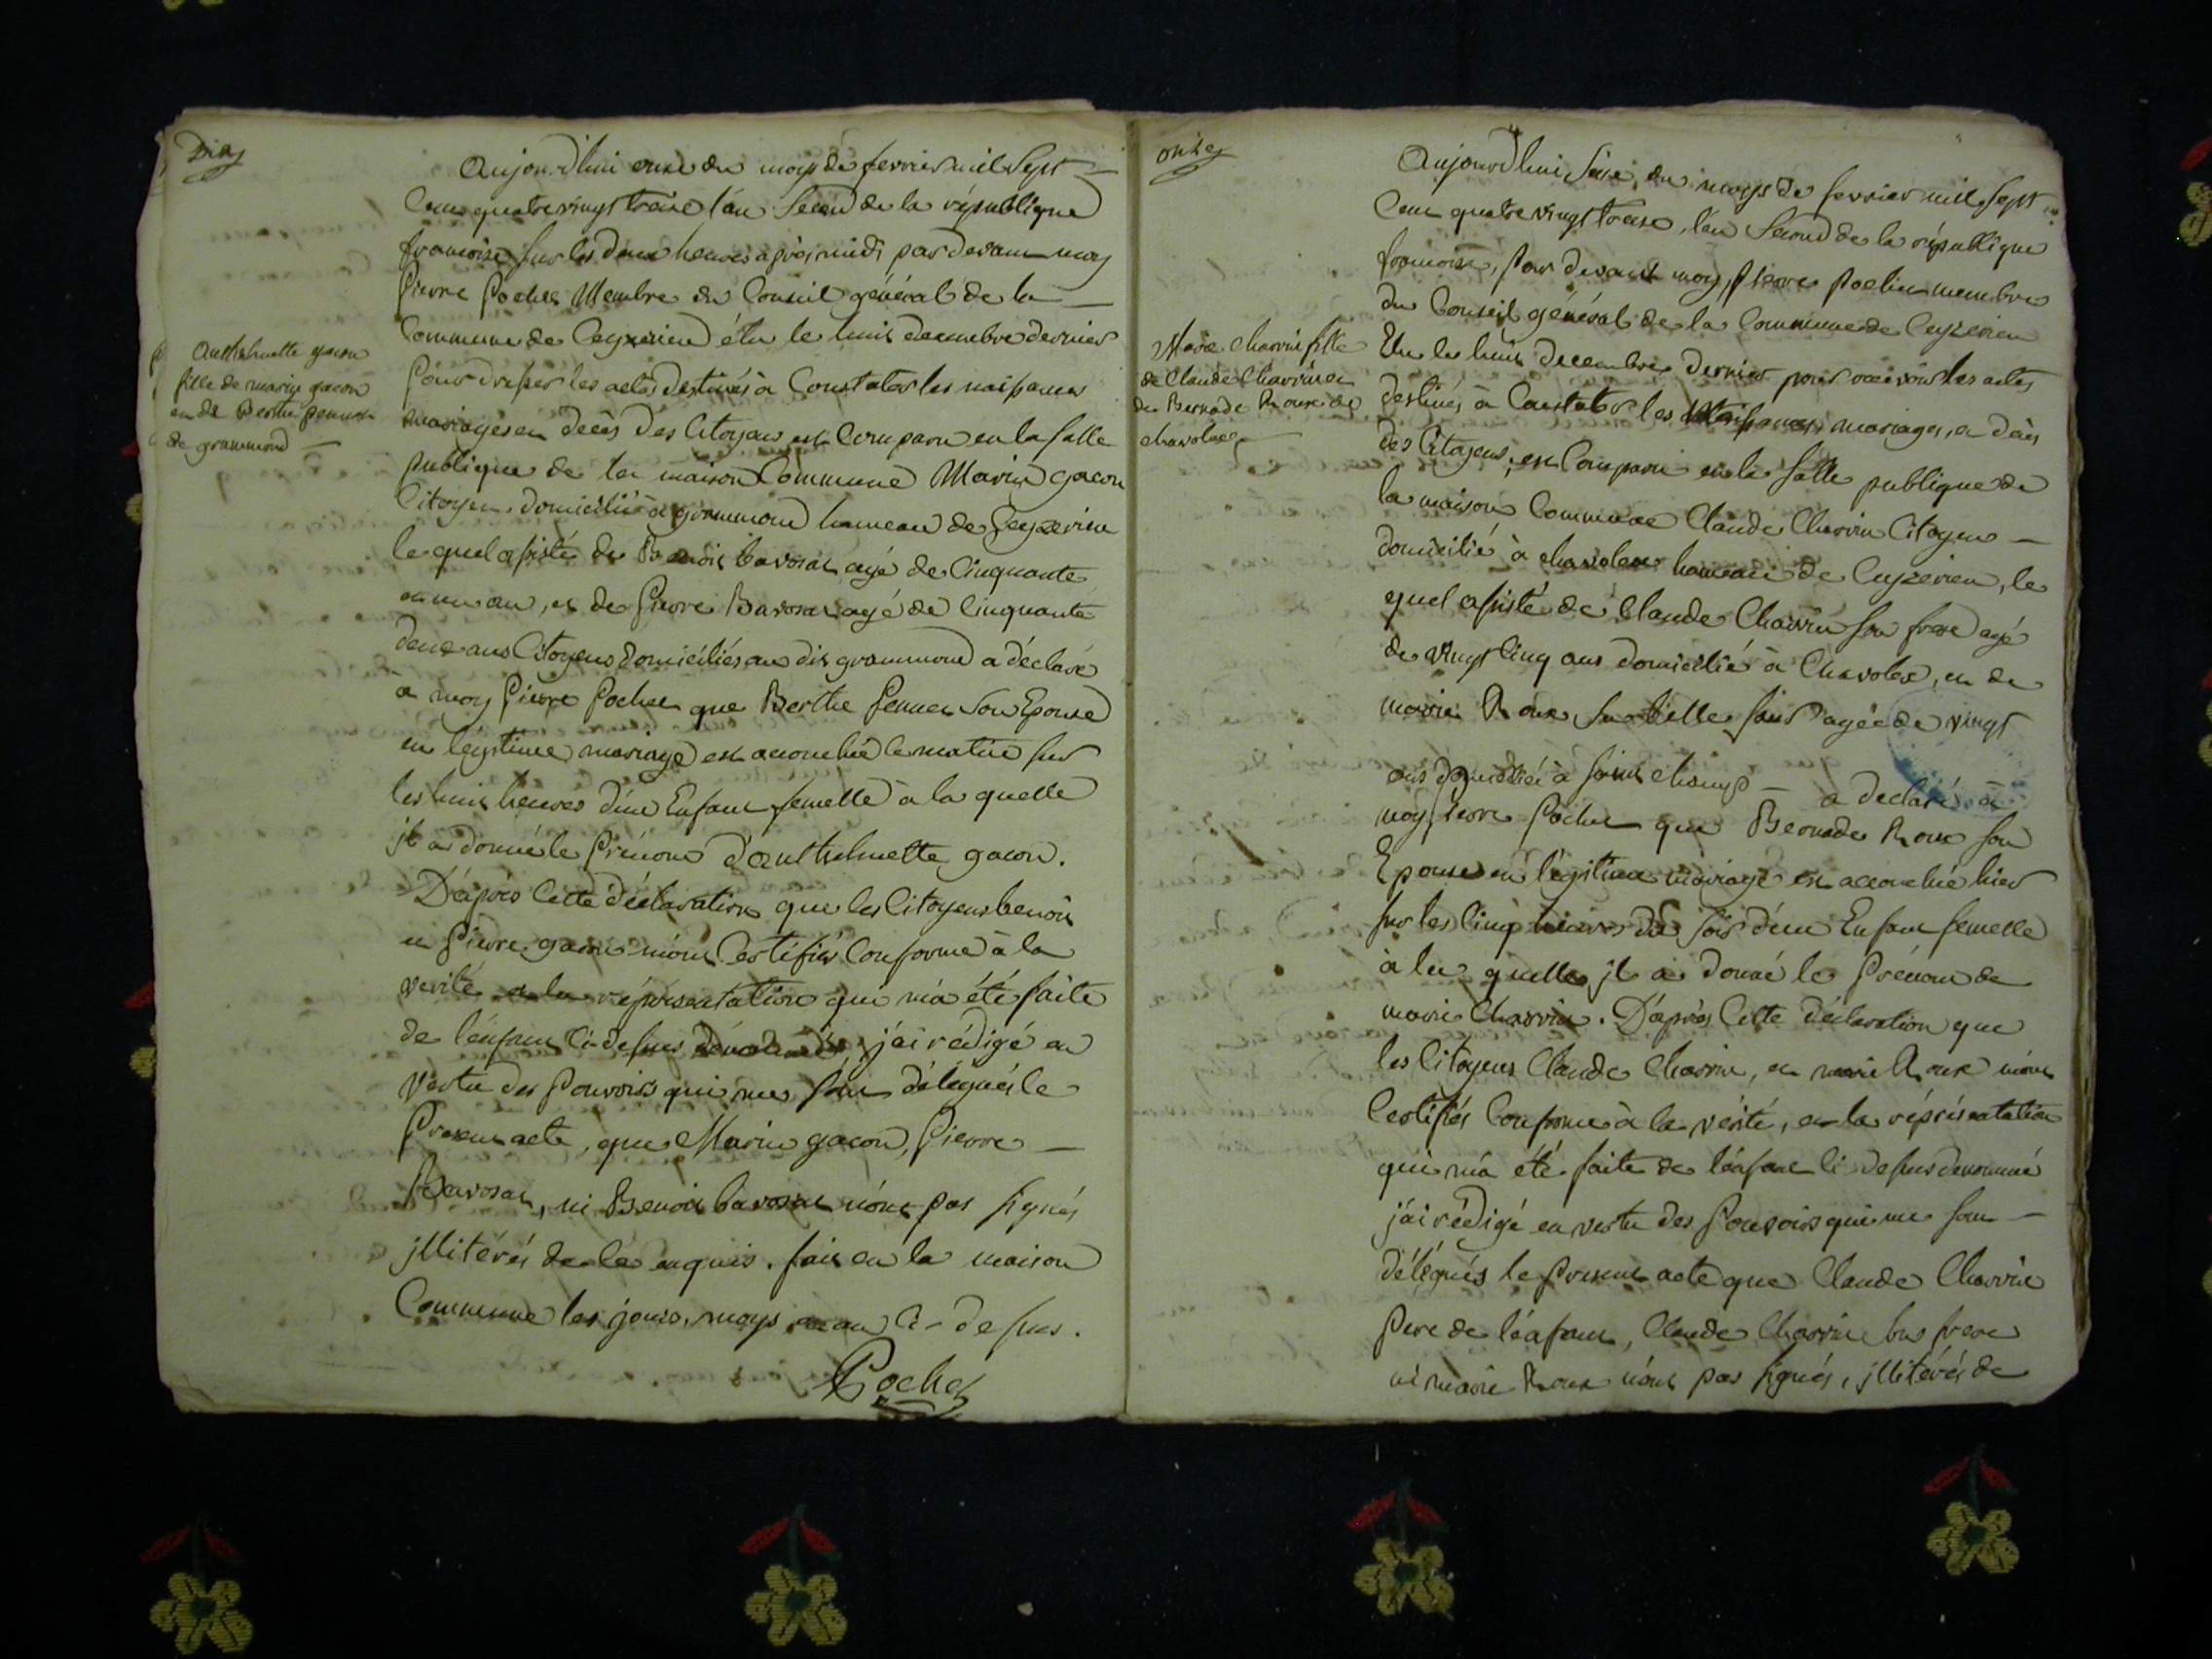 Dix
Anthelmette gacon
fille de marin gacon
et de Berthe pennet
de grammond
Aujourd'hui onze du moys de fevrier mil sept
Cent quatre vingt treize l'an second de la république
francoise sur les deux heures après midi par devant moy
Pierre Pochet Membre du Conseil général de la
Commune de Ceyzerieu élu le huit decembre dernier
Pour dresser les actes destinés à Constater les naissances
mariages et décès des Citoyens est Comparu en la salle
publique de la maison Commune Marin gacon
Citoyen domicilié à grammond hameau de Ceyzerieu
le quel assisté de Benoit bavosat agé de Cinquante
et un an, et de Pierre Bavosat agé de Cinquante
deux ans Citoyens domiciliés au dit grammond a déclaré
à moy Pierre Pochet que Berthe Pennet son Epouse
en légitime mariage est accouchée ce matin sur
les huit heures d'un Enfant femelle à la quelle
jl a donné le Prénom d'anthelmette gacon.
D'après Cette déclaration que les Citoyens benoit
et Pierre gacon m'ont Certifiés Conforme à la
verité et la répresentation qui m'a été faite
de l'enfant Ci-dessus dénommée, j'ai rédigé en
vertu des Pouvoirs qui me sont délégués le
Present acte, que Marin gacon, Pierre
Bavosat, ni Benoit bavosat n'ont pas signés
jllitérés de ce enquis. fait en la maison
Commune les jours, moys et an Ci-dessus.
Pochet
onze
Marie Charvin fille
de Claude Charvin et
de Bernade Roux de
chavolex
Aujourd'hui seize du moys de fevrier mil sept
Cent quatre vingt treize, l'an second de la république
francoise, par devant moy Pierre Pochet membre
du Conseil général de la Commune de Ceyzerieu
Elu le huit decembre dernier pour recevoir les actes
destinés à Constater les Naissances, mariages, et décès
des Citoyens, est Comparu en la salle publique de
la maison Commune Claude Charvin Citoyen
domicilié à chavolex hameau de Ceyzerieu, le
quel assisté de Claude Charvin son frere agé
de vingt Cinq ans domicilié à Chavolex, et de
marie Roux sa belle soeur agée de vingt
ans domiciliée à saint champ a declaré à
moy Pierre Pochet que Bernade Roux son
Epouse en légitime mariage est accouchée hier
sur les Cinq heures du soir d'un Enfant femelle
à la quelle jl a donné le Prénom de
marie Charvin. D'après Cette déclaration que
les Citoyens Claude Charvin, et marie Roux m'ont
Certifiés Conforme à la vérité, et la répresentation
qui m'a été faite de l'enfant Ci dessus denommé
j'ai rédigé en vertu des Pouvoirs qui me sont
délégués le Present acte que Claude Charvin
Pere de l'enfant, Claude Charvin son frere
ni marie Roux n'ont pas signés, jllitérés de